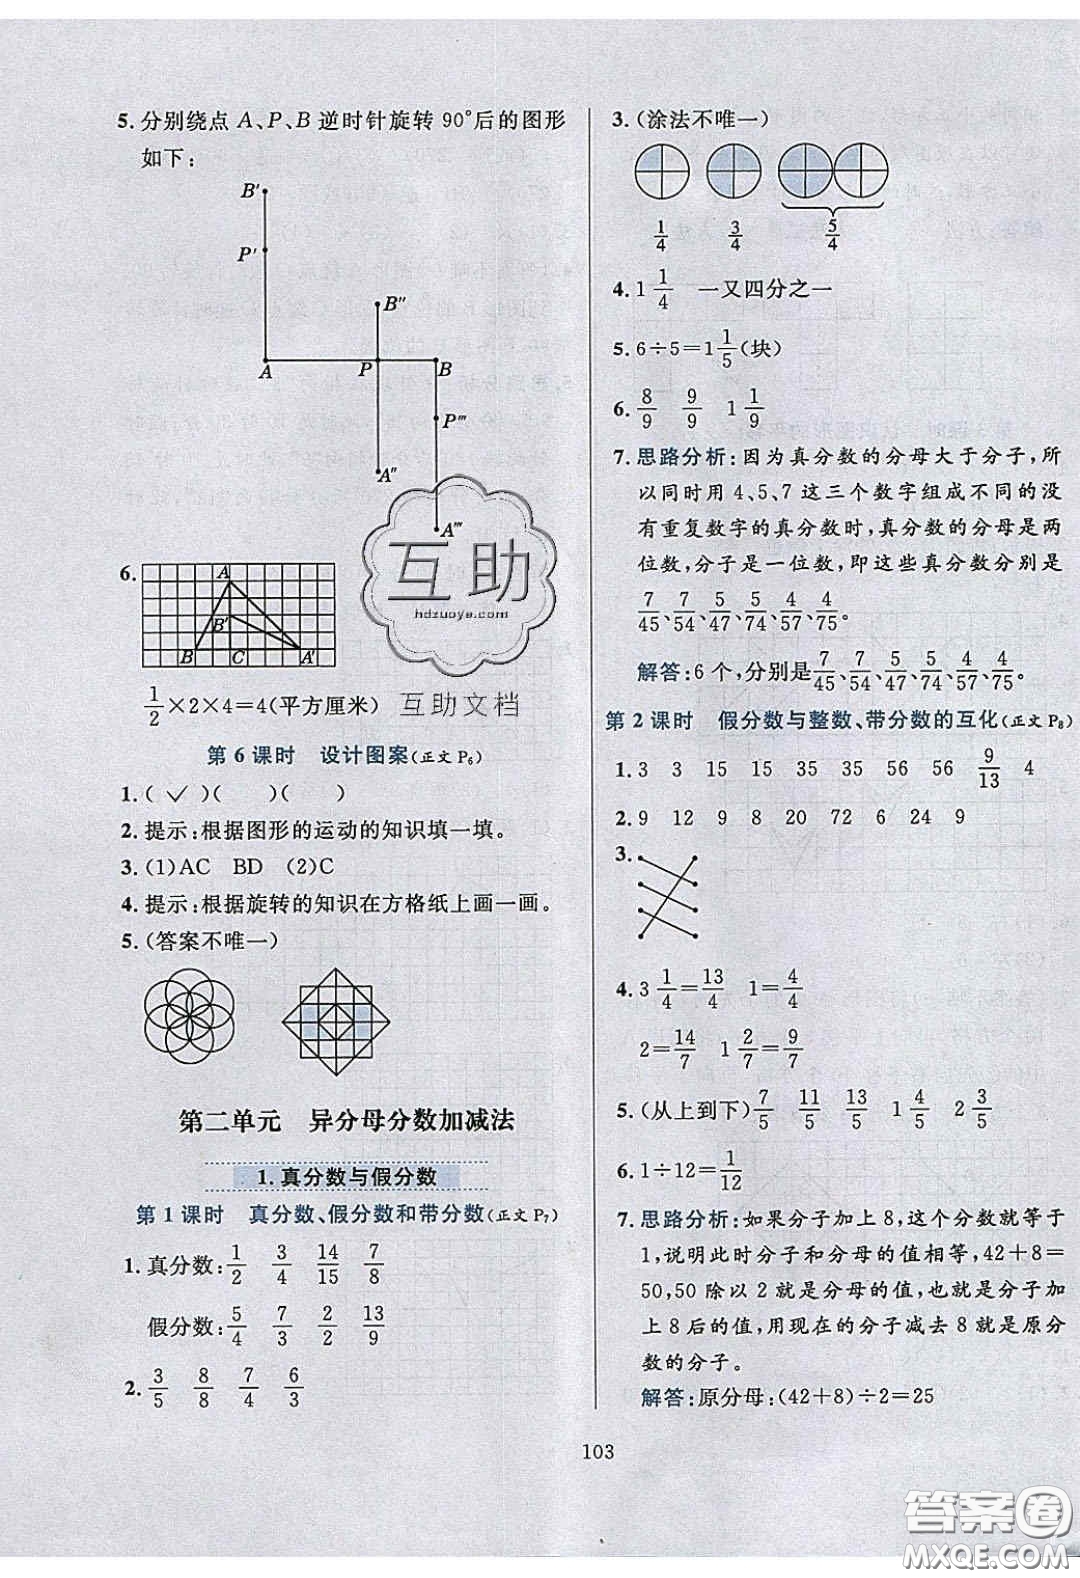 5.分别绕点 A、P、B 逆时针旋转 90°后的图形
如下:
B′
P′
B″
A
P
B
P‴
A″
A‴
6.
A
B′
B
C
A′
1/2×2×4=4(平方厘米)
第 6 课时 设计图案(正文 P6)
1.(✓)( )( )
2.提示:根据图形的运动的知识填一填。
3.(1)AC BD (2)C
4.提示:根据旋转的知识在方格纸上画一画。
5.(答案不唯一)
第二单元 异分母分数加减法
1.真分数与假分数
第 1 课时 真分数、假分数和带分数(正文 P7)
1.真分数: 1/2 3/4 14/15 7/8
假分数: 5/4 7/3 2/2 13/9
2. 3/5 8/8 7/4 6/3
3.(涂法不唯一)
1/4 3/4 5/4
4.1 1/4 一又四分之一
5.6÷5=1 1/5(块)
6. 8/9 9/9 1 1/9
7.思路分析:因为真分数的分母大于分子,所
以同时用 4、5、7 这三个数字组成不同的没
有重复数字的真分数时,真分数的分母是两
位数,分子是一位数,即这些真分数分别是
7/45、7/54、5/47、5/74、4/57、4/75。
解答:6 个,分别是 7/45、7/54、5/47、5/74、4/57、4/75。
第 2 课时 假分数与整数、带分数的互化(正文 P8)
1.3 3 15 15 35 35 56 56 9/13 4
2.9 12 9 8 20 72 6 24 9
3.
4.3 1/4=13/4 1=4/4
2=14/7 1 2/7=9/7
5.(从上到下) 7/5 11/5 13/5 1 4/5 2 3/5
6.1÷12=1/12
7.思路分析:如果分子加上 8,这个分数就等于
1,说明此时分子和分母的值相等,42+8=
50,50 除以 2 就是分母的值,也就是分子加
上 8 后的值,用现在的分子减去 8 就是原分
数的分子。
解答:原分母:(42+8)÷2=25
103
互助
hdzuoye.com
互助文档
答案圈
MXQE.COM